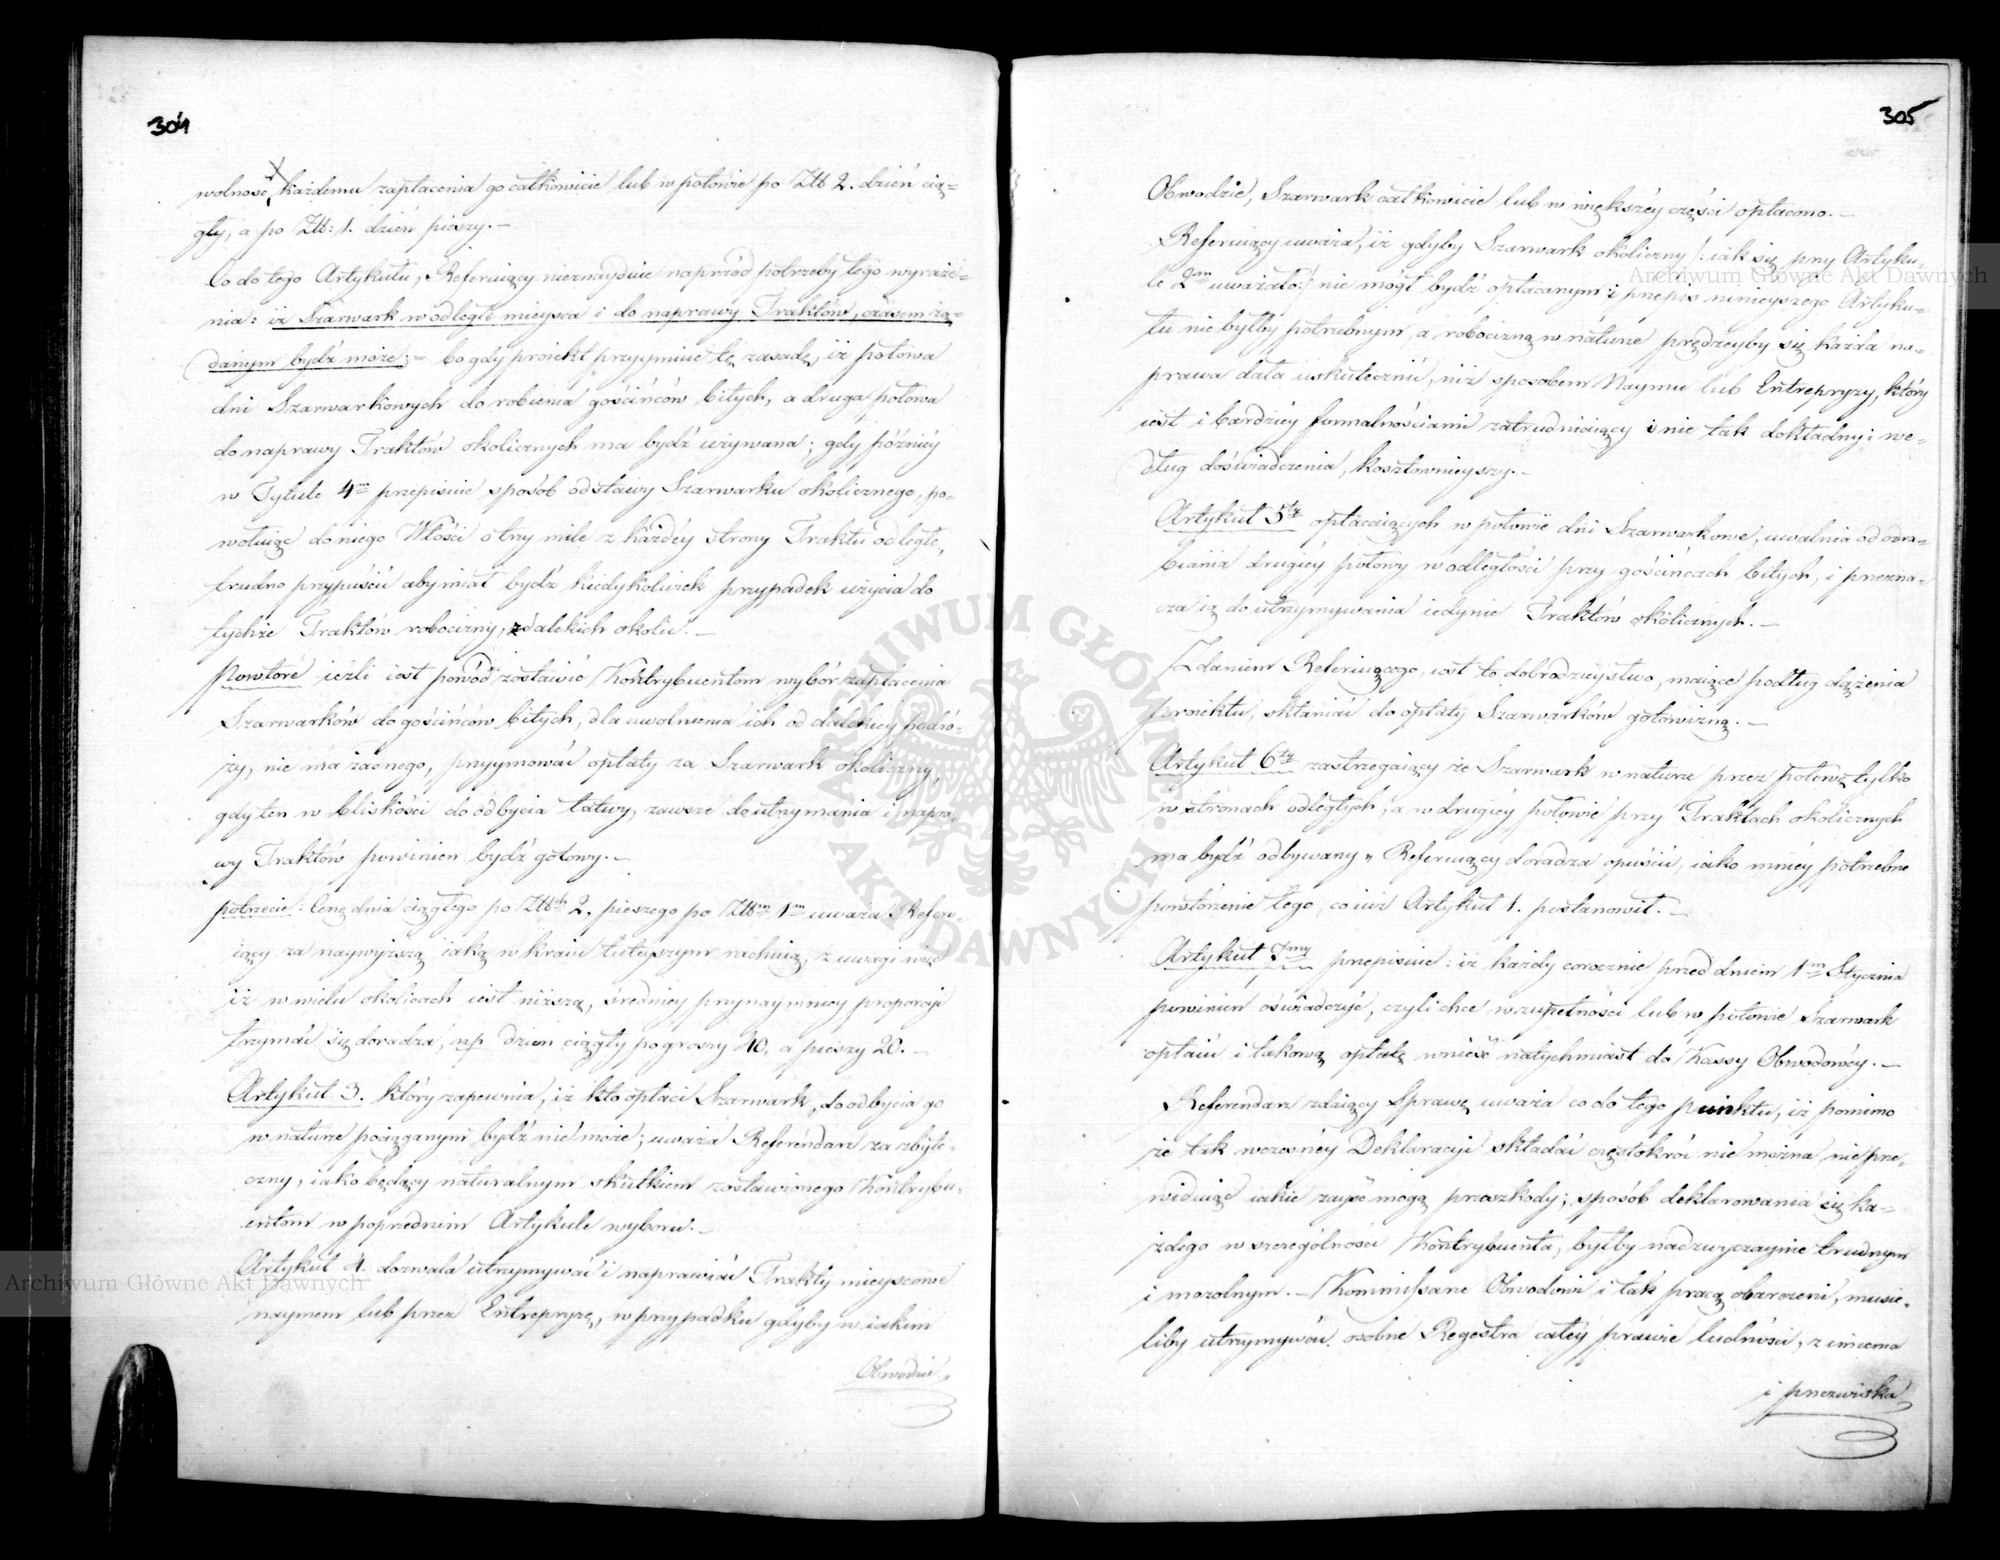 304
wolność każdemu zapłacenia go całkowicie lub w połowie po Złł 2. dzień cią=
gły, a po Złł: 1. dzień pieszy.—
Co do tego Artykułu, Referuiący nieznayduie naprzód potrzeby tego wyraże=
nia: iż Szarwark w odległe mieysca i do naprawy Traktów, czasem żą=
danym bydź może;= bo gdy proiekt przyymuie tę zasadę, iż połowa
dni Szarwarkowych do robienia gościńców bitych, a druga połowa
do naprawy Traktów okolicznych ma bydź używana; gdy późniéy
w Tytule 4m przepisuie sposób odstawy Szarwarku okolicznego, po=
wołuiąc do niego Włości o trzy mile z każdéy strony Traktu odległe,
trudno przypuścić aby miał bydź kiedykolwiek przypadek użycia do
tychże Traktów robocizny, z dalekich okolic.—
Powtóre ieżli iest powód zostawić Kontrybuentom wybór zapłacenia
Szarwarków do gościńców bitych, dla uwolnienia ich od dalekiey podró=
ży, nie ma żadnego, przyymować opłaty za Szarwark okoliczny,
gdy ten w bliskości do odbycia łatwy, zawsze do utrzymania i napra=
wy Traktów powinien bydź gotowy.—
potrzecie: Cenę dnia ciągłego po Złłch 2, pieszego po Złłm 1m uważa Refer=
iący za naywyższą iaką w kraiu tuteyszym rachuią, z uwagi więc
iż w wielu okolicach iest niższą, średniey przynaymniey proporcyi
trzymać się doradza, np. dzień ciągły po groszy 40, a pieszy 20.—
Artykuł 3. który zapewnia, iż kto opłaci Szarwark, do odbycia go
w naturze pociąganym bydź nie może; uważa Referendarz za zbyte=
czny, iako będący naturalnym skutkiem zostawionego Kontrybu=
entom w poprzednim Artykule wyboru.—
Artykuł 4. dozwala utrzymywać i naprawiać Trakty mieyscowe
naymem lub przez Entrepryzę, w przypadku gdyby w iakim
Obwodzie,
305
Obwodzie, Szarwark całkowicie lub w większéy części opłacono.—
Referuiący uważa, iż gdyby Szarwark okoliczny /: iak się przy Artyku=
le 2m uważało:/ nie mógł bydź opłacanym i przepis ninieyszego Artyku=
łu nie byłby potrzebnym, a robocizną w naturze prędzeyby się każda na=
prawa dała uskutecznić, niż sposobem Naymu lub Entrepryzy, który
iest i bardziéy formalnościami zatrudniaiący i nie tak dokładny i we=
dług doświadczenia, kosztownieyszy.—
Artykuł 5ty opłacaiących w połowie dni Szarwarkowe, uwalnia od odra=
biania drugiéy połowy w odległości przy gościńcach bitych, i przezna=
cza ią do utrzymywania iedynie Traktów okolicznych.—
Zdaniem Referuiącego, iest to dobrodzieystwo, maiące podług dążenia
proiektu, skłaniać do opłaty Szarwarków gotowizną.—
Artykuł 6ty zastrzegaiący że Szarwark w naturze przez połowę tylko
w stronach odległych, a w drugiéy połowie przy Traktach okolicznych
ma bydź odbywany „ Referuiący doradza opuścić, iako mniéy potrzebne
powtórzenie tego, co iuż Artykuł 1. postanowił.—
Artykuł 7my przepisuie: iż każdy corocznie przed dniem 1m Stycznia
powinien oświadczyć, czyli chce w zupełności lub w połowie Szarwark
opłacić i takową opłatę wnieść natychmiast do Kassy Obwodowéy.—
Referendarz zdaiący Sprawę uważa co do tego punktu, iż pomimo
że tak wczesnéy Deklaracyi składać częstokroć nie można nie prze=
widuiąc iakie zayść mogą przeszkody; sposób deklarowania się ka=
żdego w szczególności Kontrybuenta, byłby nadzwyczaynie trudnym
i mozolnym.— Kommissarze Obwodowi i tak pracą obarczeni, musie=
liby utrzymywać osobne Regestra całéy prawie ludności, z imienia
i przezwiska
Archiwum Główne Akt Dawnych
Archiwum Główne Akt Dawnych
ARCHIWUM GŁÓWNE AKT DAWNYCH